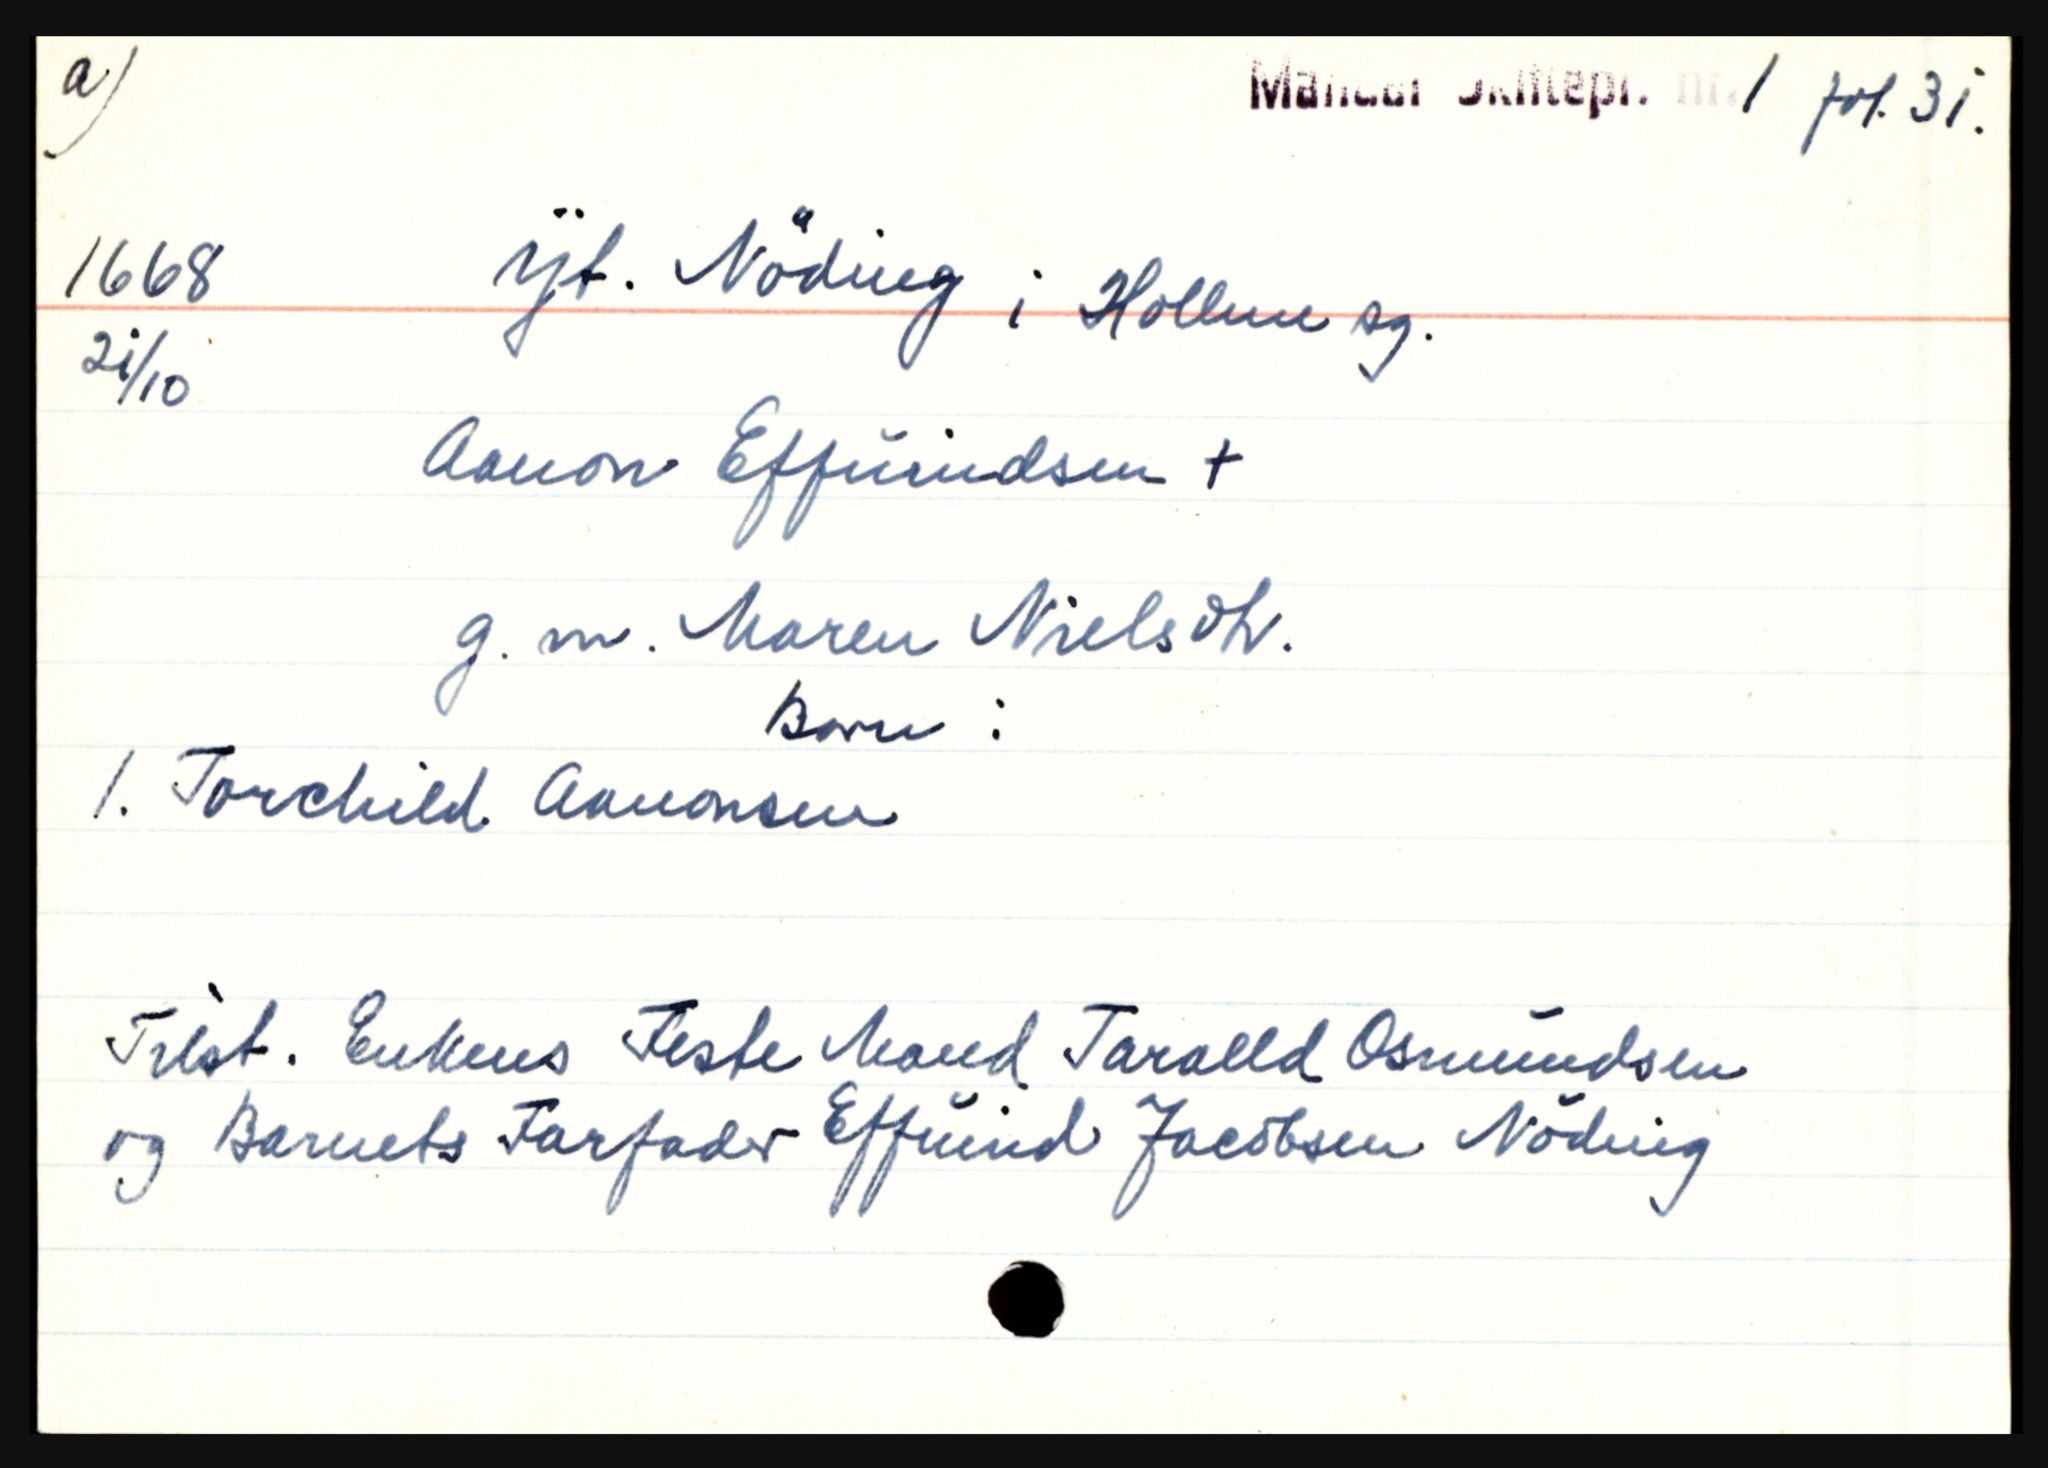 a)
Mandal Skiftepr. nr. 1 fol. 31.
1668 Yt. Nöding i Hollum sg.
21/10
Aanon Effuindsen +
g. m. Maren Nielsdtr.
Born :
1. Torchild Aanonsen
Tilst. Enkens Feste Mand Taralld Osmundsen
og Barnets Farfader Effuind Jacobsen Nöding